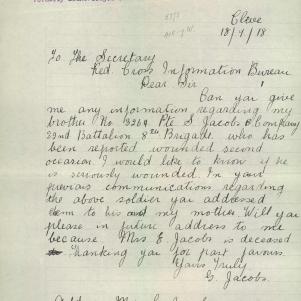 Cleve
18/7/18
To The Secretary
Red Cross Information Bureau
Dear Sir
Can you give
me any information regarding my
brother No 3264 Pte S Jacobs Company
32nd Battalion 8th Brigade who has
been reported wounded second
occasion. I would like to know if he
is seriously wounded. In your
previous communications regarding
the above soldier you addressed
them to his and my mother. Will you
please in future address to me
because Mrs E Jacobs is deceased
Thanking you for past favours
Yours Truly
G. Jacobs.